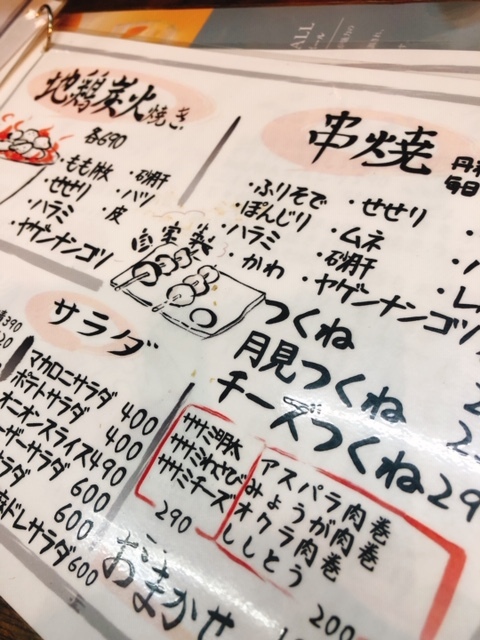 地鶏炭火焼き
各690
・もも肉 ・砂肝
・せせり ・ハツ
・ハラミ ・皮
・ヤゲンナンコツ
串焼
・ふりそで ・せせり
・ぼんじり ・ムネ
・ハラミ ・砂肝
・かわ ・ヤゲンナンコツ
自家製
つくね
月見つくね
チーズつくね 29
サラダ
マカロニサラダ 400
ポテトサラダ 400
オニオンスライス 490
ーザーサラダ 600
サラダ 600
ドレサラダ 600
ササミ明太
ササミわさび
ササミチーズ
290
アスパラ肉巻
みょうが肉巻
オクラ肉巻
ししとう
200
おまかせ